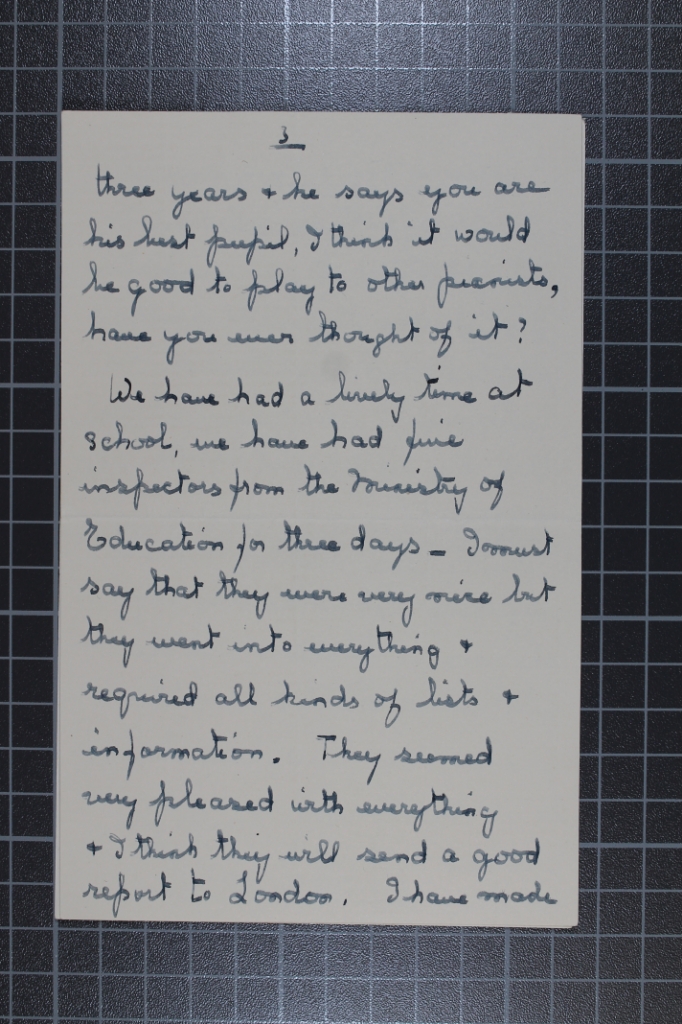 3
three years + he says you are
his best pupil, I think it would
be good to play to other pianists,
have you ever thought of it?
We have had a lively time at
school, we have had five
inspectors from the Ministry of
Education for three days – I must
say that they were very nice but
they went into everything +
required all kinds of lists +
information. They seemed
very pleased with everything
+ I think they will send a good
report to London. I have made